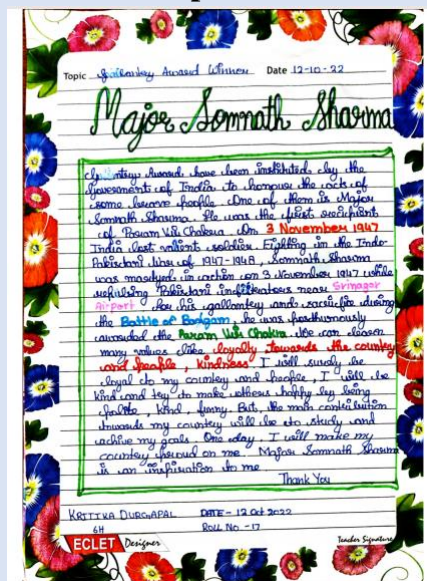 Topic Gallantry Award Winner Date 12-10-22
Major Somnath Sharma
Gallantry Award have been instituted by the
Government of India to honour the acts of
some brave people One of them is Major
Somnath Sharma. He was the first recipient
of Param Vir Chakra On 3 November 1947
India lost valient soldier Fighting in the Indo-
Pakistani War of 1947-1948, Somnath Sharma
was martyed in action on 3 November 1947 while
repulsing Pakistani infiltrators near Srinagar
Airport For his gallantry and sacrifice during
the Battle of Badgam, he was posthumously
awarded the Param Vir Chakra. We can learn
many values like loyalty towards the country
and people, kindness. I will surely be
loyal to my country and people, I will be
kind and try to make others happy by being
polite, kind, funny. But, the main contribution
towards my country will be to study and
achive my goals. One day I will make my
country proud on me. Major Somnath Sharma
is an inspiration to me.
Thank You
KRITIKA DURGAPAL DATE - 12 Oct 2022
6H ROLL No - 17
ECLET Designer Teacher Signature